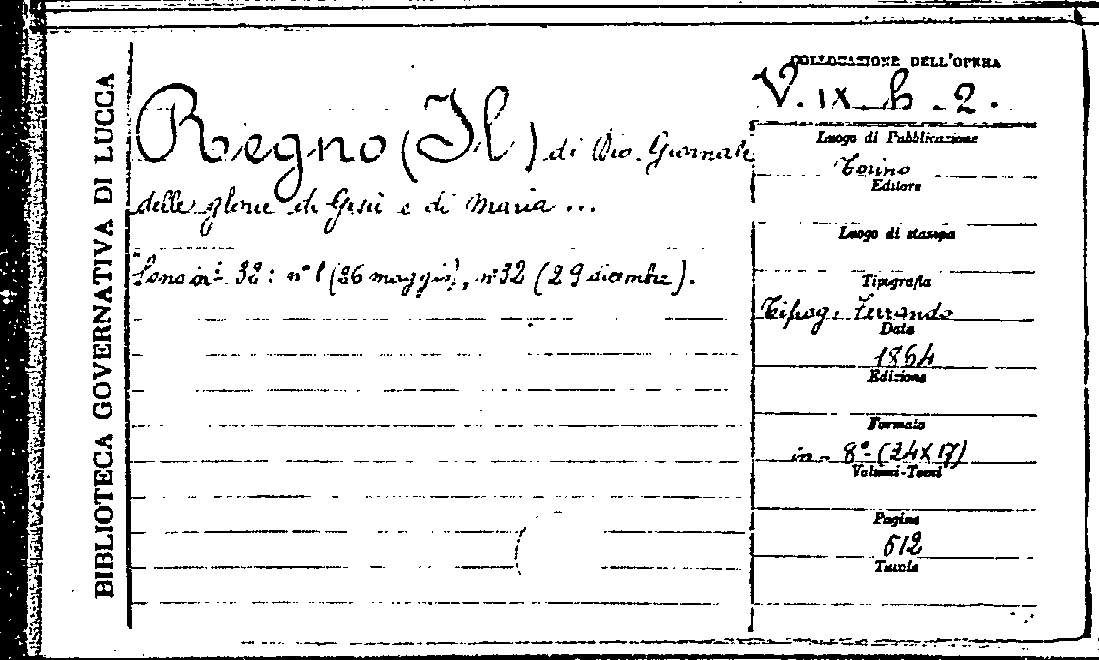 BIBLIOTECA GOVERNATIVA DI LUCCA
Regno (Il) di Dio. Giornale
delle glorie di Gesù e di Maria ...
Sono inⁱ 32: n° 1 (26 maggio), n° 32 (29 dicembre).
COLLOCAZIONE DELL'OPERA
V. IX. h. 2.
Luogo di Pubblicazione
Torino
Editore
Luogo di stampa
Tipografia
Tipog. Ferrando
Data
1864
Edizione
Formato
in - 8° (24X17)
Volumi-Tomi
Pagine
512
Tavole